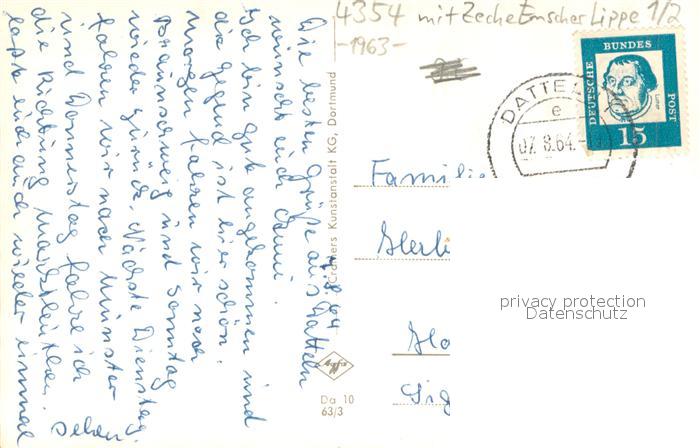 4354 mit Zeche Emscher Lippe 1/2
-1963-
DEUTSCHE
BUNDES
POST
15
DATTELN
e
07.8.64.
7.8.64
Die besten Grüße aus Datteln
wünscht euch
Ich bin gut angekommen und
die Gegend ist hier schön.
Morgen fahren wir nach
Braunschweig und Sonntag
wieder zurück. Nächste Dienstag
fahren wir nach Münster
und Donnerstag fahre ich
die Richtung
laßt euch auch wieder einmal
sehen.
Cramers Kunstanstalt KG, Dortmund
Agfa
Da 10
63/3
Familie
Herb
Glo
Sig
privacy protection
Datenschutz